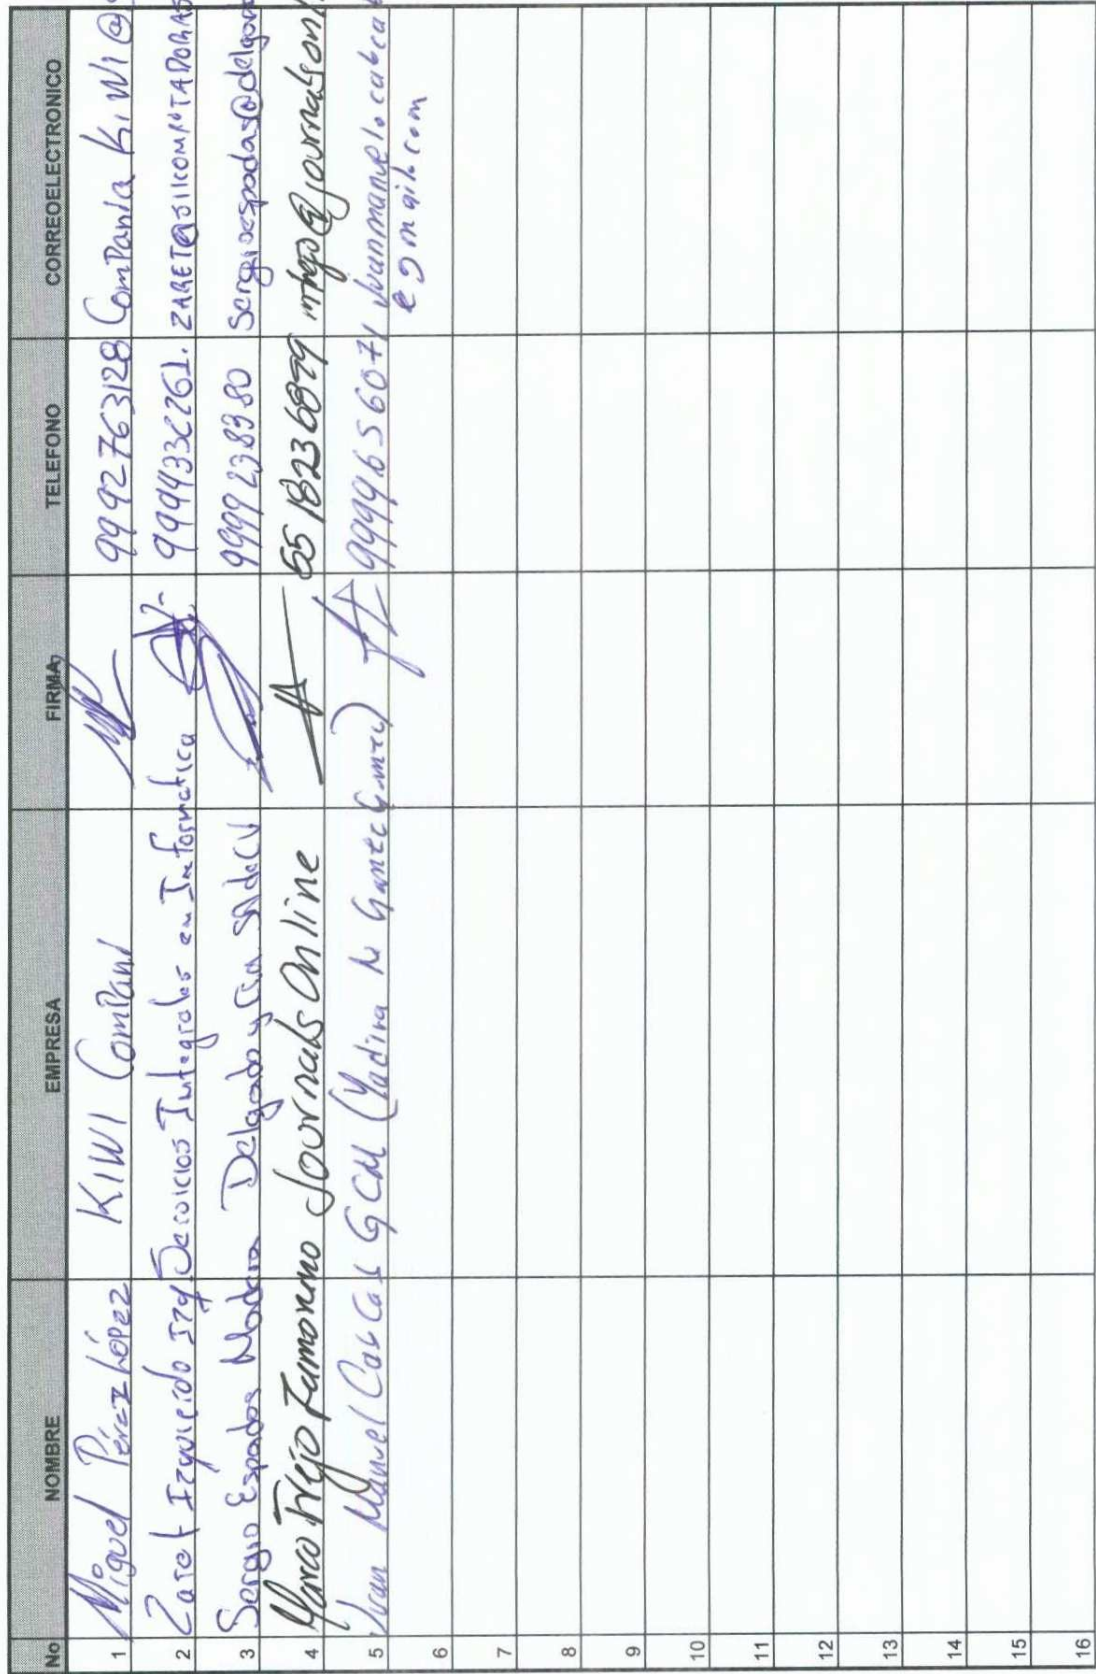 No NOMBRE EMPRESA FIRMA TELEFONO CORREOELECTRONICO
1 Miguel Pérez López KIWI ComPani 9992763128 ComPania KiWi@
2 Zaret Izquierdo Izq Servicios Integrales en Informatica 9994332261. ZARET@SIICOMPUTADORAS
3 Sergio Espadas Madera Delgado y Cia SA de CV 9999238980 sergioespadas@delgado
4 Marco Trejo Zamorano Journals Online 55 18236899 mtrejo@journalson
5 Juan Manuel GCM (Yadira 9999656071
@gmail.com
6
7
8
9
10
11
12
13
14
15
16